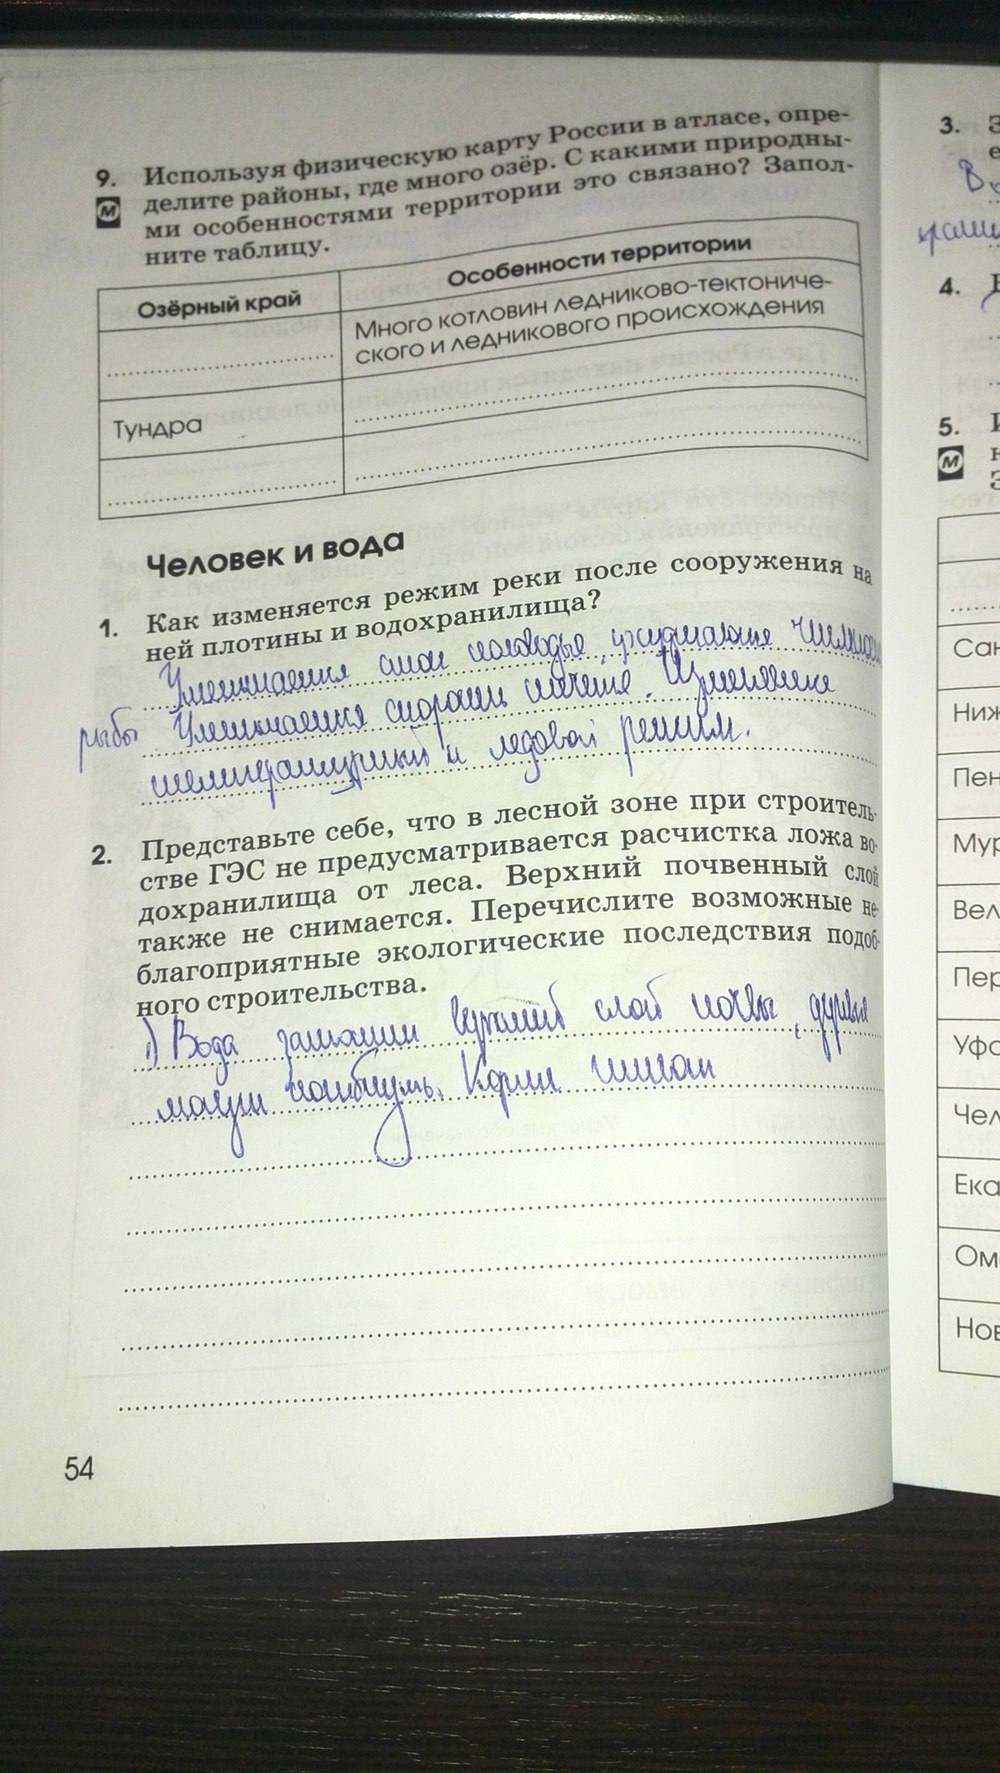 9. Используя физическую карту России в атласе, опре-
делите районы, где много озёр. С какими природны-
ми особенностями территории это связано? Запол-
ните таблицу.
М
Озёрный край
Особенности территории
Много котловин ледниково-тектониче-
ского и ледникового происхождения
Тундра
Человек и вода
1. Как изменяется режим реки после сооружения на
ней плотины и водохранилища?
Уменьшается половодье,
рыбы Уменьшается скорость течения. Изменяется
и ледовой режим.
2. Представьте себе, что в лесной зоне при строитель-
стве ГЭС не предусматривается расчистка ложа во-
дохранилища от леса. Верхний почвенный слой
также не снимается. Перечислите возможные не-
благоприятные экологические последствия подоб-
ного строительства.
1) Вода затопит верхний слой почвы, деревья
могут погибнуть. Корни
54
3. З
4.
5. И
н
З
М
Сан
Ниж
Пен
Мур
Вел
Пер
Уфа
Чел
Ека
Ом
Нов